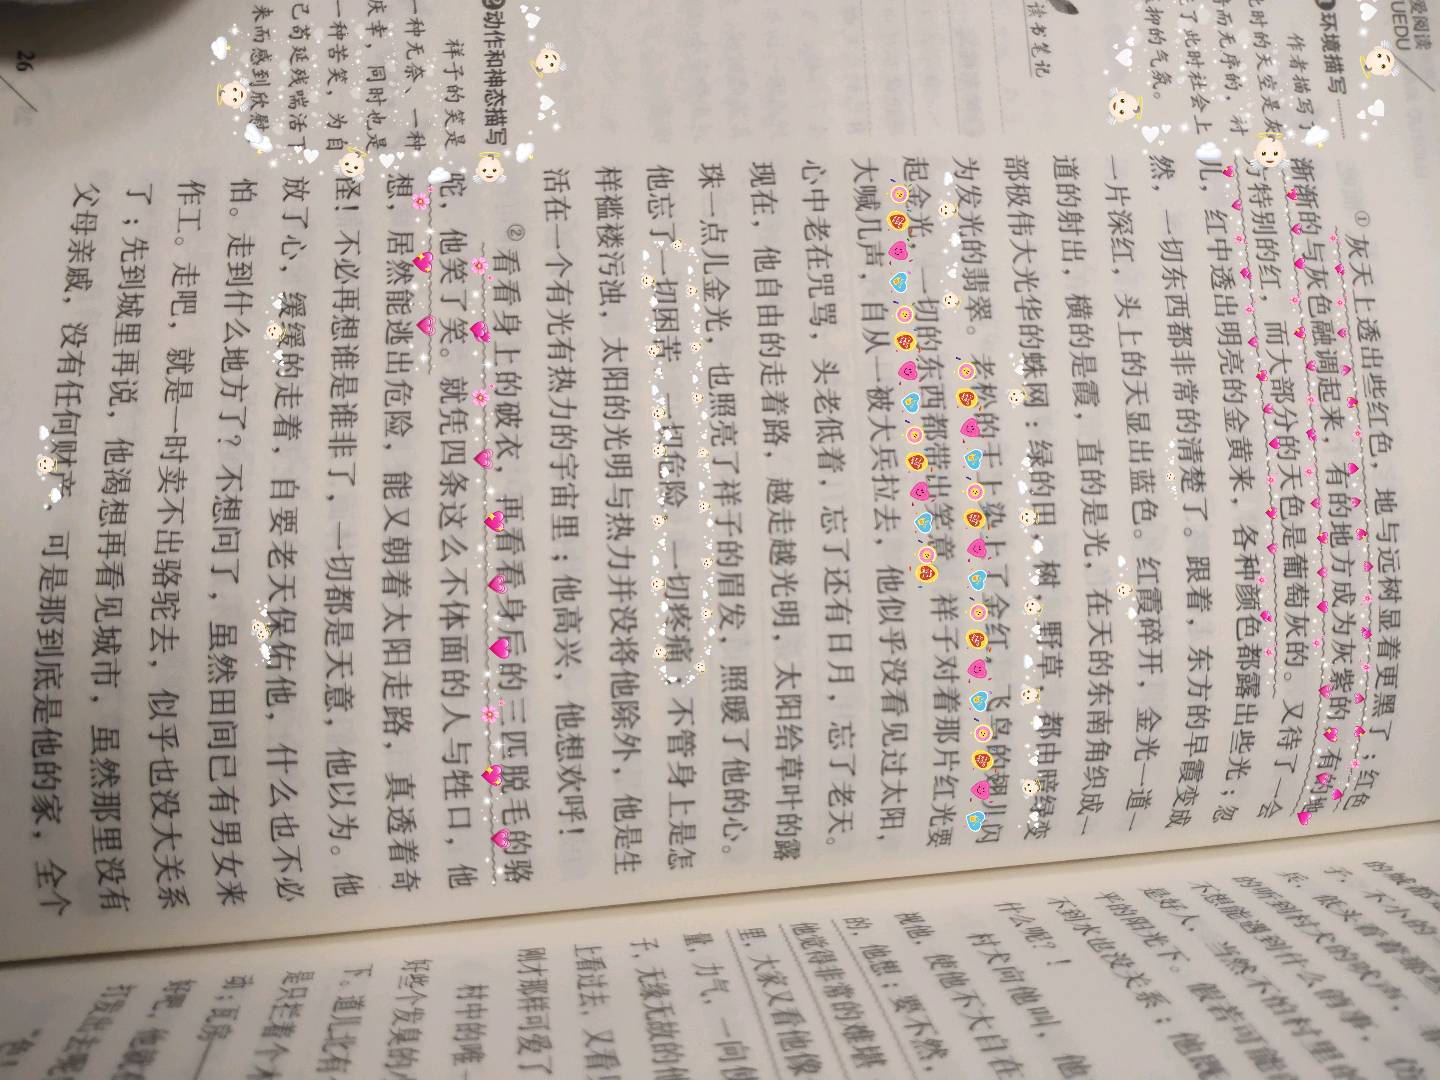 爱阅读
❶环境描写
作者描写了
此时的天空是灰
了此时社会上
抑的气氛。
读书笔记
❷动作和神态描写
祥子的笑是
一种无奈、一种
庆幸，同时也是
一种苦笑，为自
己苟延残喘活下
来而感到欣慰
26
①灰天上透出些红色，地与远树显着更黑了；红色
渐渐的与灰色融调起来，有的地方成为灰紫的，有的地
特别的红，而大部分的天色是葡萄灰的。又待了一会
儿，红中透出明亮的金黄来，各种颜色都露出些光；忽
然，一切东西都非常的清楚了。跟着，东方的早霞变成
一片深红，头上的天显出蓝色。红霞碎开，金光一道一
道的射出，横的是霞，直的是光，在天的东南角织成一
部极伟大光华的蛛网：绿的田，树，野草，都由暗绿变
为发光的翡翠。老松的干上染上了金红，飞鸟的翅儿闪
起金光，一切的东西都带出笑意。祥子对着那片红光要
大喊几声，自从一被大兵拉去，他似乎没看见过太阳，
心中老在咒骂，头老低着，忘了还有日月，忘了老天。
现在，他自由的走着路，越走越光明，太阳给草叶的露
珠一点儿金光，也照亮了祥子的眉发，照暖了他的心。
他忘了一切困苦，一切危险，一切疼痛；不管身上是怎
样褴褛污浊，太阳的光明与热力并没将他除外，他是生
活在一个有光有热力的宇宙里；他高兴，他想欢呼！
②看看身上的破衣，再看看身后的三匹脱毛的骆
驼，他笑了笑。就凭四条这么不体面的人与牲口，他
想，居然能逃出危险，能又朝着太阳走路，真透着奇
怪！不必再想谁是谁非了，一切都是天意，他以为。他
放了心，缓缓的走着，自要老天保佑他，什么也不必
怕。走到什么地方了？不想问了，虽然田间已有男女来
作工。走吧，就是一时卖不出骆驼去，似乎也没大关系
了；先到城里再说，他渴想再看见城市，虽然那里没有
父母亲戚，没有任何财产，可是那到底是他的家，全个
子，低头看着那
的听到村犬的吠声，
不想能遇到什么倒事，
是好人，当然不怕村里的
平的阳光下。假若可能
不到水也没关系；他既
什么呢？！
村犬向他叫，他
视他，使他不大自在
的，他想；要不然，
他觉得非常的难堪
里，大家又看他像
量，力气，一向使
子，无缘无故的他
上看过去，又看
刚才那样可爱了
村中的唯一
好些个发臭的
下。道儿北有
是只拦着个木